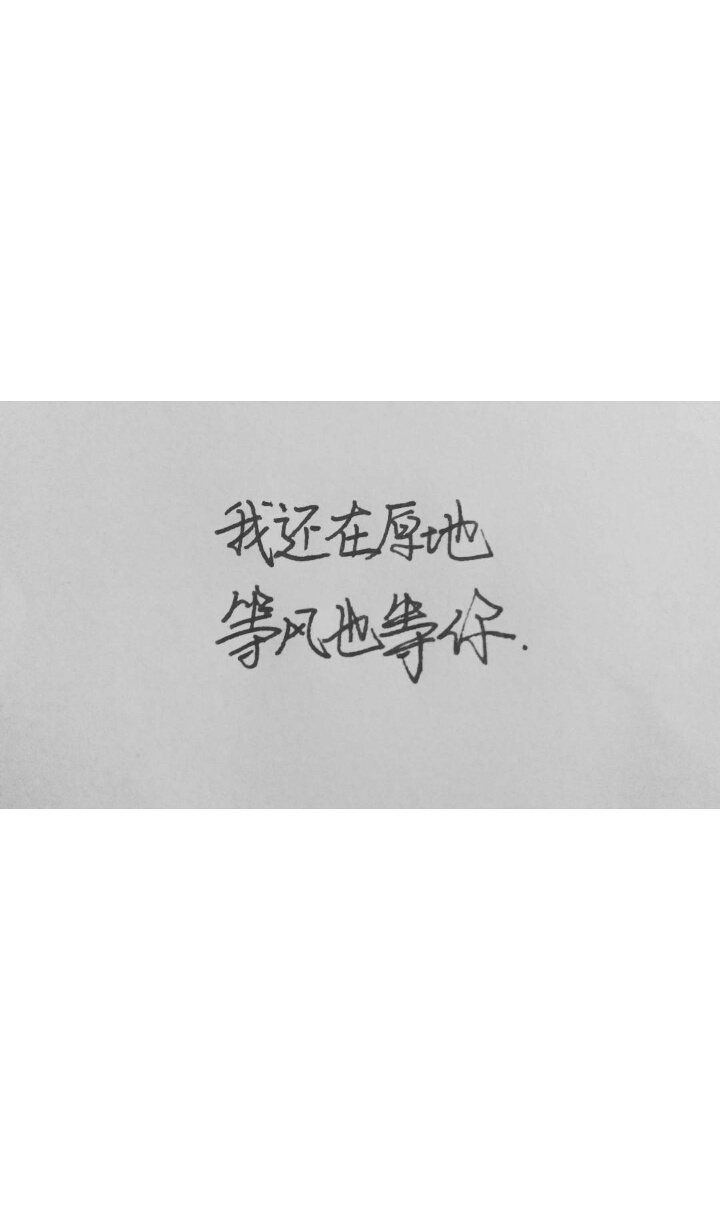 我还在原地
等风也等你.